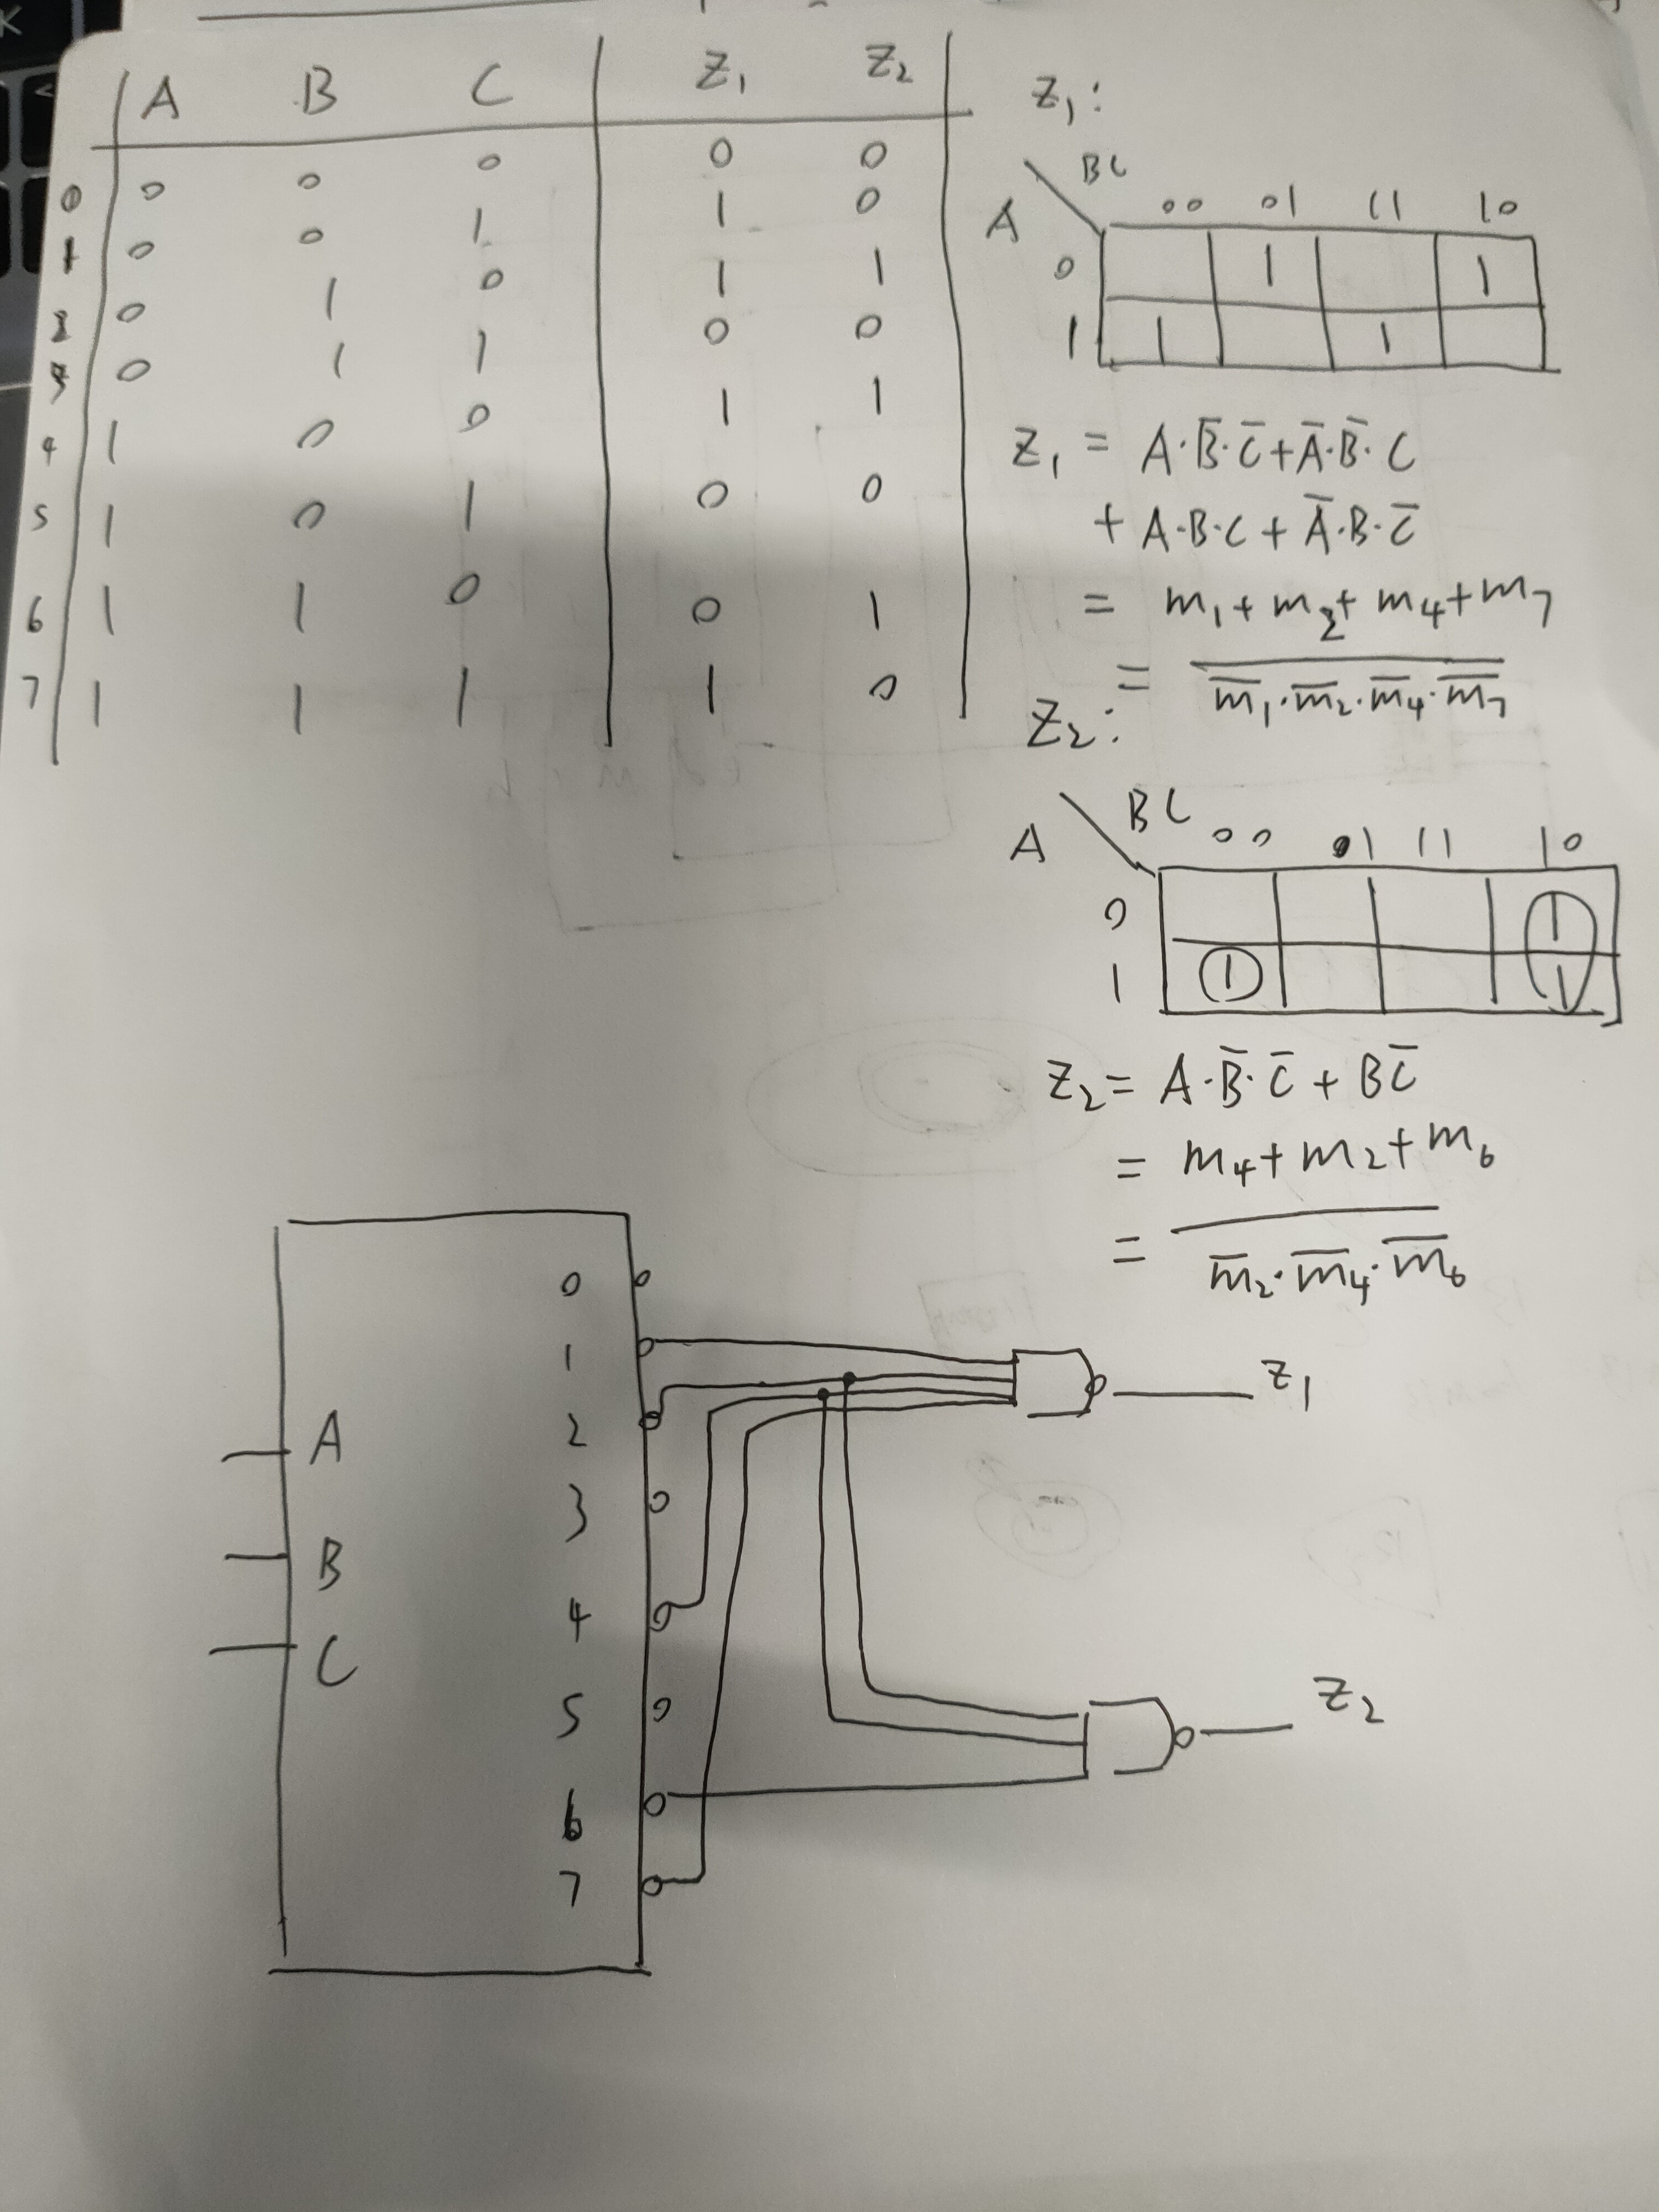 A B C Z₁ Z₂
0 0 0 0 0 0
1 0 0 1 1 0
2 0 1 0 1 1
3 0 1 1 0 0
4 1 0 0 1 1
5 1 0 1 0 0
6 1 1 0 0 1
7 1 1 1 1 0
Z₁:
BC
A 00 01 11 10
0 1 1
1 1 1
Z₁ = A·B̅·C̅+A̅·B̅·C
+ A·B·C + A̅·B·C̅
= m₁+m₂+m₄+m₇
= \overline{m̅₁·m̅₂·m̅₄·m̅₇}
Z₂:
BC
A 00 01 11 10
0 1
1 1 1
Z₂ = A·B̅·C̅ + BC̅
= m₄+m₂+m₆
= \overline{m̅₂·m̅₄·m̅₆}
0
1
Z₁
A
2
3
B
4
C
5
Z₂
6
7